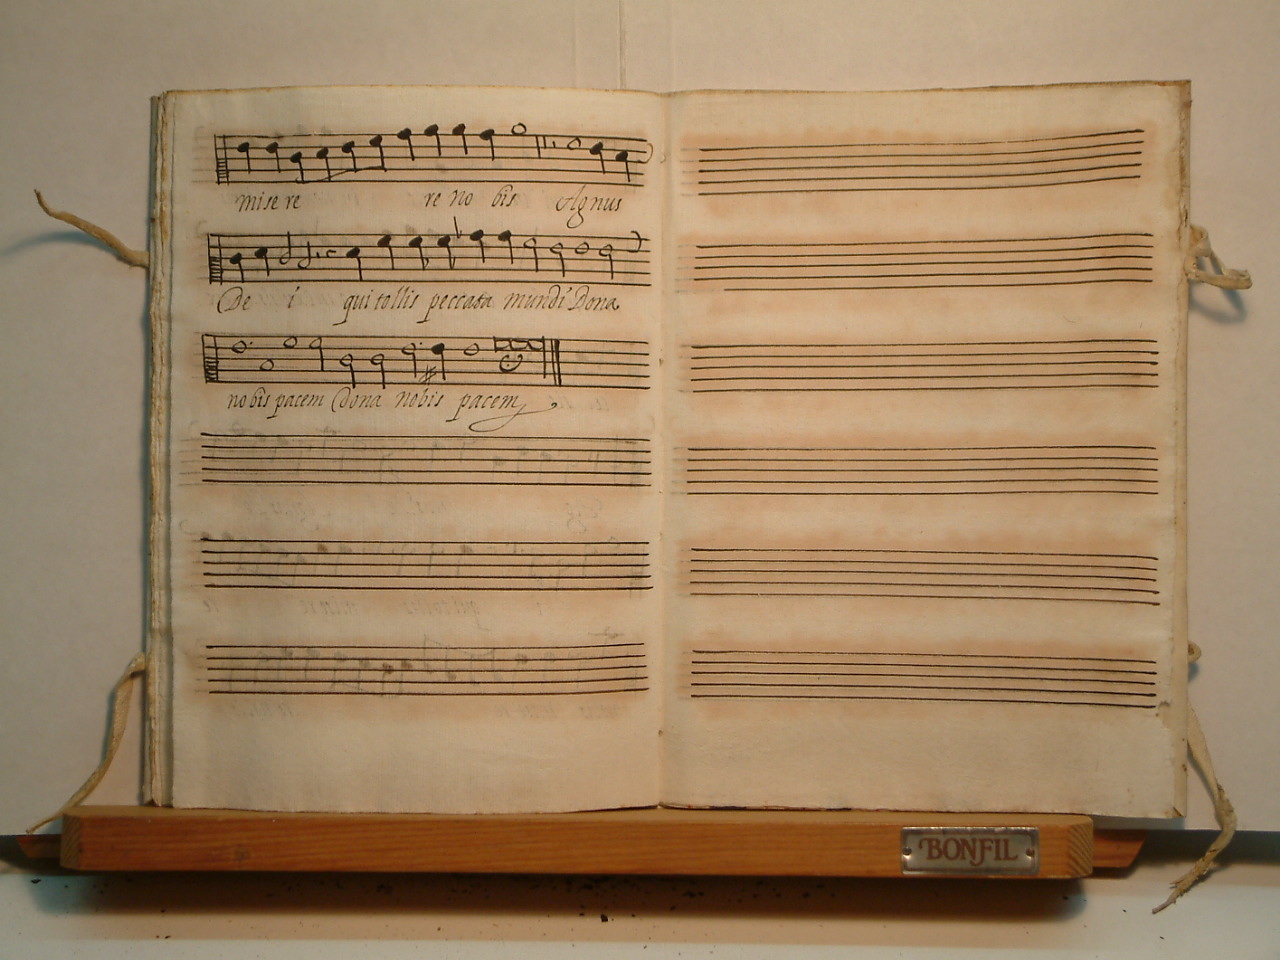 misere re no bis Agnus
De i qui tollis peccata mundi Dona
nobis pacem Dona nobis pacem
BONFIL